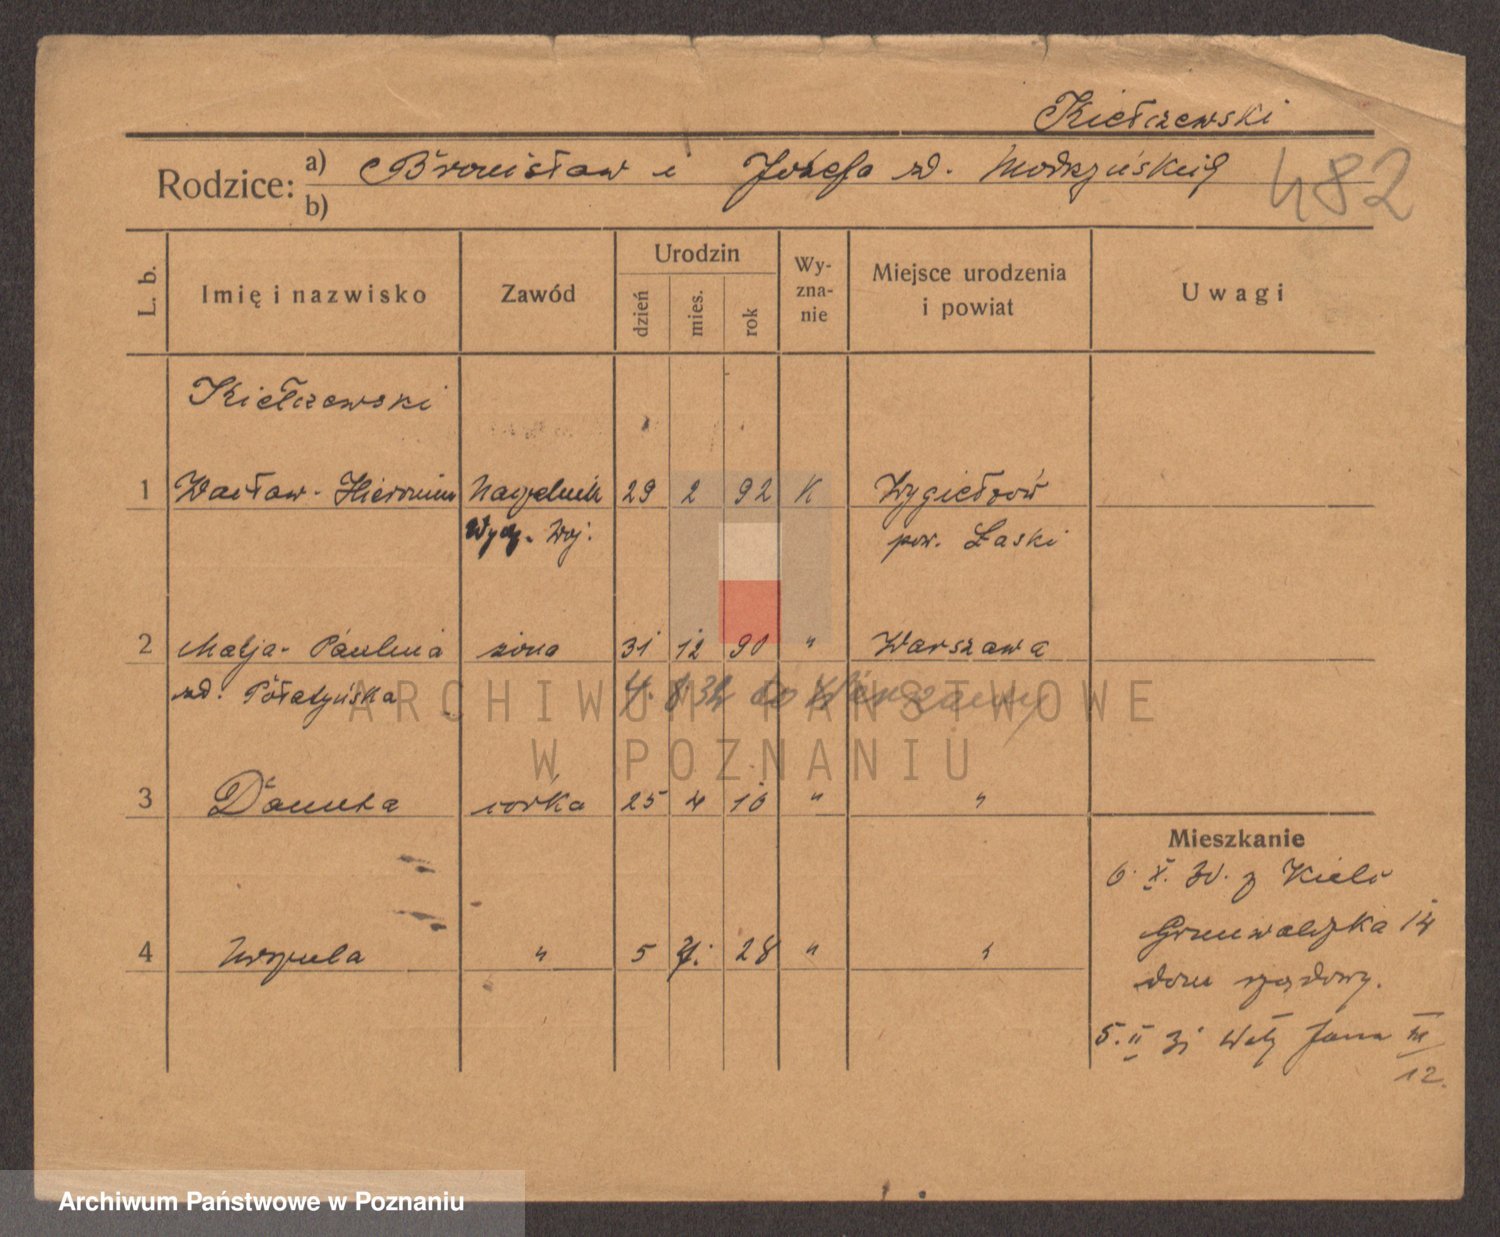 Kiełczewski
Rodzice: a) Bronisław i Józefa zd. Modrzyńskich
b)
482
L. b.
Imię i nazwisko
Zawód
Urodzin
dzień
mies.
rok
Wy-
zna-
nie
Miejsce urodzenia
i powiat
Uwagi
Kiełczewski
1 Wacław-Hieronim Naczelnik 29 2 92 K Wygiełzów
Wydz. Woj. pow. Łaski
2 Marja-Paulina żona 31 12 90 " Warszawa
zd. do Warszawy
3 Danuta córka 25 4 16 " "
Mieszkanie
6. X. 30. z Kielc
4 Urszula " 5 28 " "
Grunwaldzka 14
dom rządowy.
5. II 31 Jana III
12.
ARCHIWUM PAŃSTWOWE
W POZNANIU
Archiwum Państwowe w Poznaniu